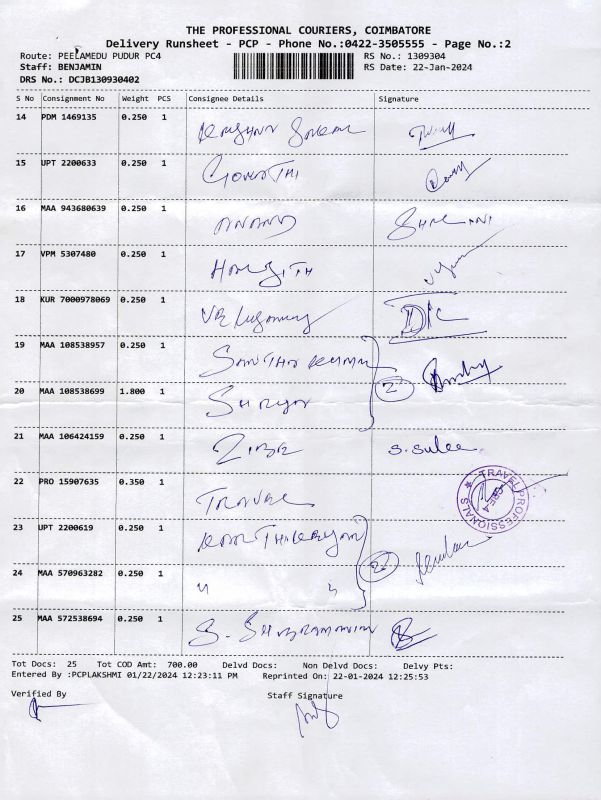 THE PROFESSIONAL COURIERS, COIMBATORE
Delivery Runsheet - PCP - Phone No.:0422-3505555 - Page No.:2
Route: PEELAMEDU PUDUR PC4 RS No.: 1309304
Staff: BENJAMIN RS Date: 22-Jan-2024
DRS No.: DCJB130930402
S No Consignment No Weight PCS Consignee Details Signature
14 PDM 1469135 0.250 1
15 UPT 2200633 0.250 1
16 MAA 943680639 0.250 1 ANAND SHALINI
17 VPM 5307480 0.250 1
18 KUR 7000978069 0.250 1
19 MAA 108538957 0.250 1
20 MAA 108538699 1.800 1 Surya 2
21 MAA 106424159 0.250 1 S. Sulee
22 PRO 15907635 0.350 1 Travel
TRAVEL PROFESSIONALS
CBE-4
23 UPT 2200619 0.250 1
24 MAA 570963282 0.250 1 " " 2
25 MAA 572538694 0.250 1 S. Subramanian
Tot Docs: 25 Tot COD Amt: 700.00 Delvd Docs: Non Delvd Docs: Delvy Pts:
Entered By :PCPLAKSHMI 01/22/2024 12:23:11 PM Reprinted On: 22-01-2024 12:25:53
Verified By Staff Signature